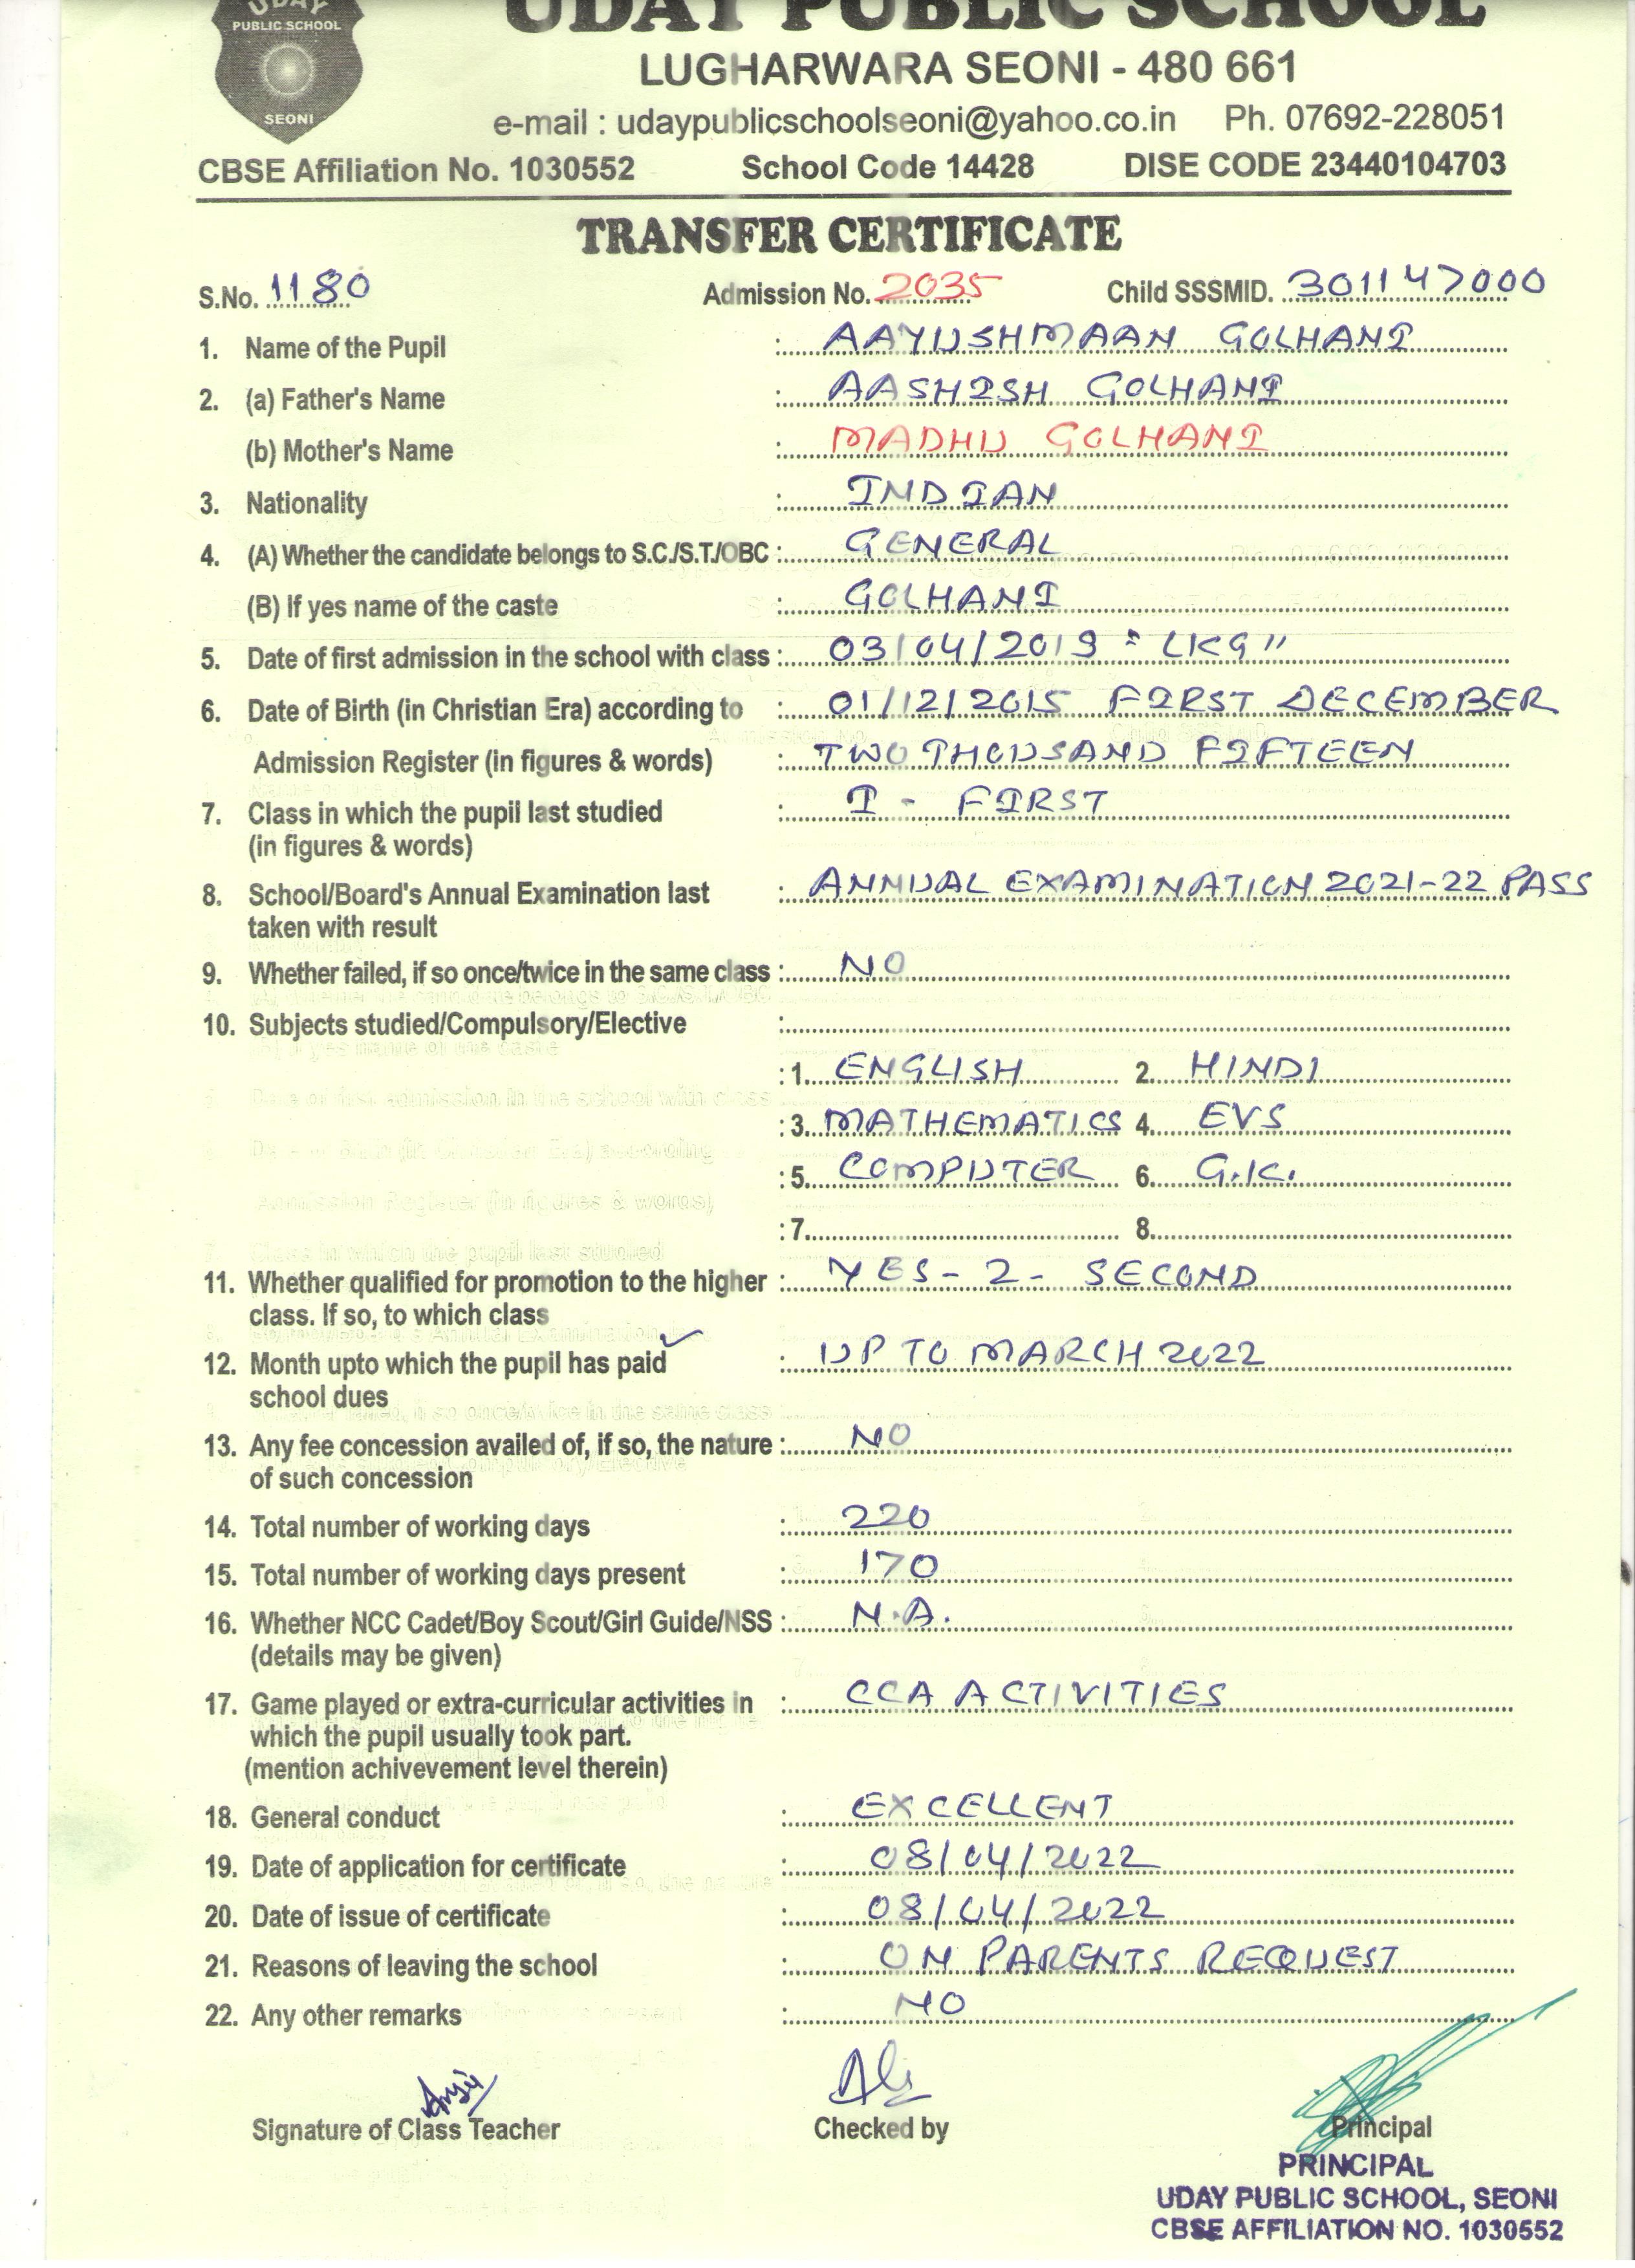 UDAY
PUBLIC SCHOOL
SEONI
UDAY PUBLIC SCHOOL
LUGHARWARA SEONI - 480 661
e-mail : udaypublicschoolseoni@yahoo.co.in Ph. 07692-228051
CBSE Affiliation No. 1030552 School Code 14428 DISE CODE 23440104703
TRANSFER CERTIFICATE
S.No. 1180 Admission No. 2035 Child SSSMID. 301147000
1. Name of the Pupil : AAYUSHMAAN GOLHANI
2. (a) Father's Name : AASHISH GOLHANI
(b) Mother's Name : MADHU GOLHANI
3. Nationality : INDIAN
4. (A) Whether the candidate belongs to S.C./S.T./OBC : GENERAL
(B) If yes name of the caste : GOLHANI
5. Date of first admission in the school with class : 03/04/2019 "LKG"
6. Date of Birth (in Christian Era) according to : 01/12/2015 FIRST DECEMBER
Admission Register (in figures & words) : TWO THOUSAND FIFTEEN
7. Class in which the pupil last studied : I - FIRST
(in figures & words)
8. School/Board's Annual Examination last : ANNUAL EXAMINATION 2021-22 PASS
taken with result
9. Whether failed, if so once/twice in the same class : NO
10. Subjects studied/Compulsory/Elective :
: 1. ENGLISH 2. HINDI
: 3. MATHEMATICS 4. EVS
: 5. COMPUTER 6. G.K.
: 7. 8.
11. Whether qualified for promotion to the higher : YES - 2 - SECOND
class. If so, to which class
12. Month upto which the pupil has paid : UP TO MARCH 2022
school dues
13. Any fee concession availed of, if so, the nature : NO
of such concession
14. Total number of working days : 220
15. Total number of working days present : 170
16. Whether NCC Cadet/Boy Scout/Girl Guide/NSS : N.A.
(details may be given)
17. Game played or extra-curricular activities in : CCA ACTIVITIES
which the pupil usually took part.
(mention achivevement level therein)
18. General conduct : EXCELLENT
19. Date of application for certificate : 08/04/2022
20. Date of issue of certificate : 08/04/2022
21. Reasons of leaving the school : ON PARENTS REQUEST
22. Any other remarks : NO
Signature of Class Teacher Checked by Principal
PRINCIPAL
UDAY PUBLIC SCHOOL, SEONI
CBSE AFFILIATION NO. 1030552